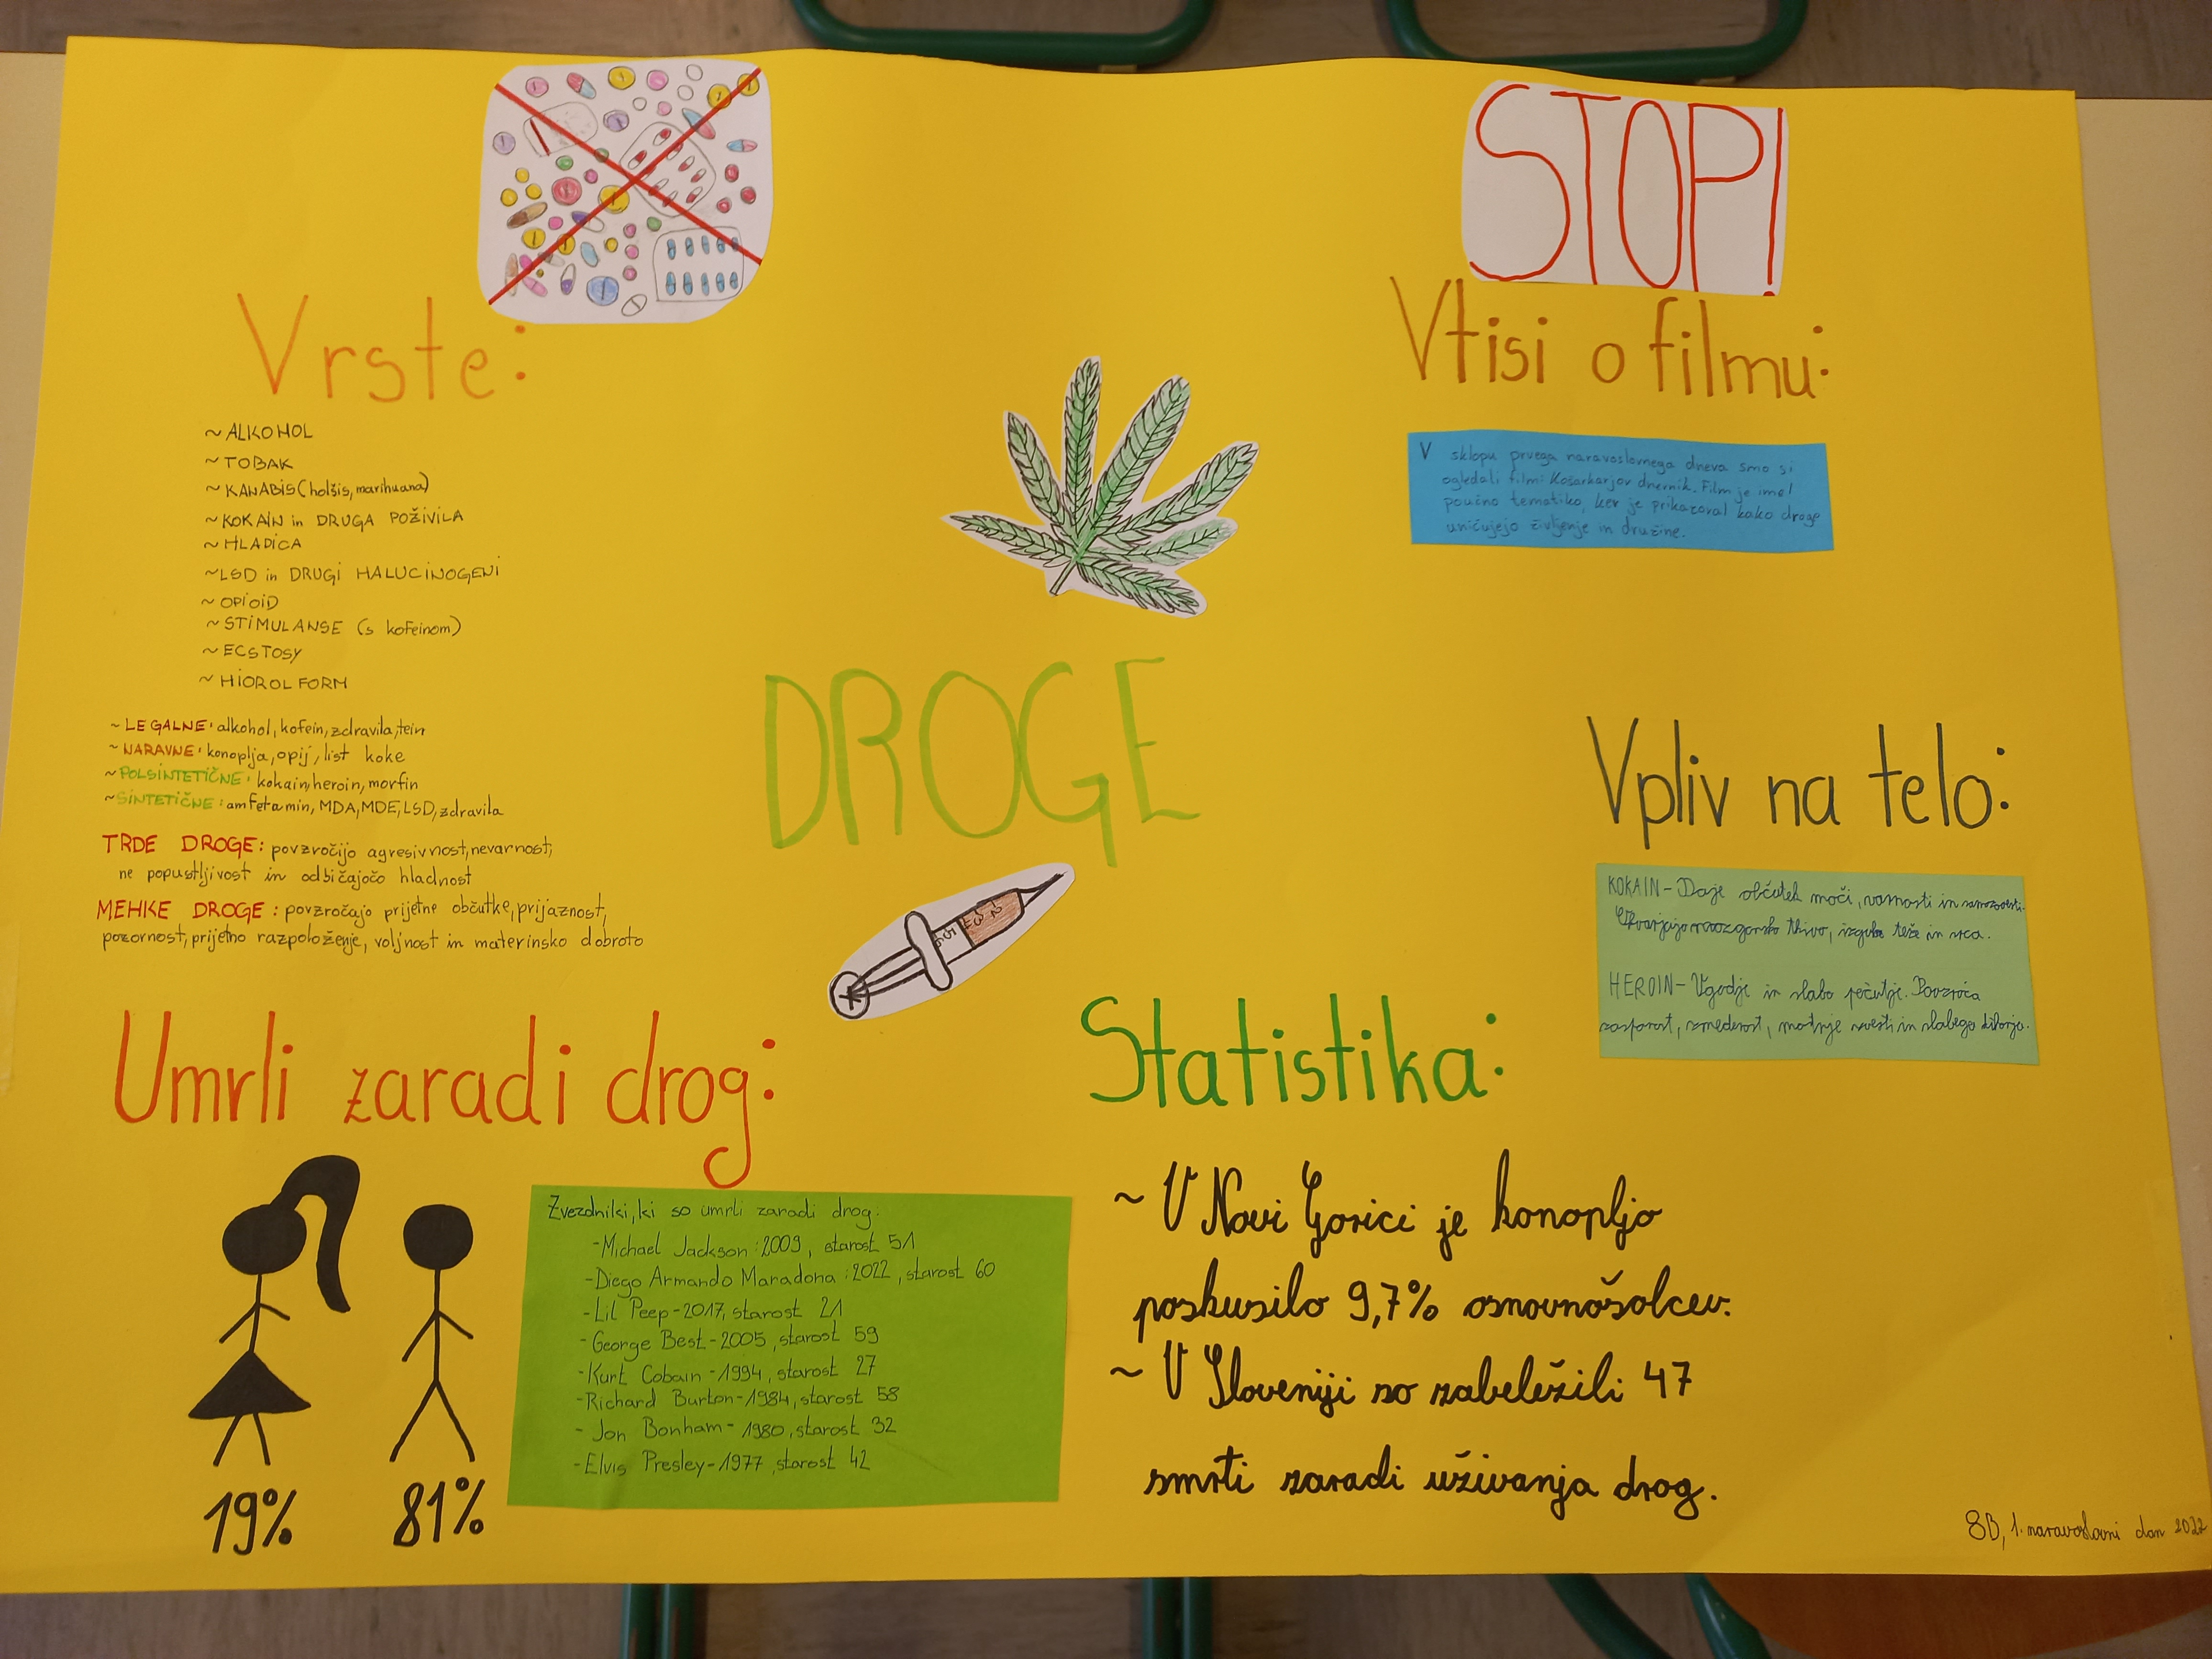 STOP!
Vrste:
~ALKOHOL
~TOBAK
~KANABIS (hašiš, marihuana)
~KOKAIN in DRUGA POŽIVILA
~HLADICA
~LSD in DRUGI HALUCINOGENI
~OPIOID
~STIMULANSE (s kofeinom)
~ECSTOSY
~LEGALNE: alkohol, kofein, zdravila, tein
~NARAVNE: konoplja, opij, list koke
~POLSINTETIČNE: kokain, heroin, morfin
~SINTETIČNE: amfetamin, MDA, MDE, LSD, zdravila
TRDE DROGE: povzročijo agresivnost, nevarnost,
ne popustljivost in odbičajočo hladnost
MEHKE DROGE: povzročajo prijetne občutke, prijaznost,
pozornost, prijetno razpoloženje, voljnost in materinsko dobroto
DROGE
Vtisi o filmu:
V sklopu prvega naravoslovnega dneva smo si
ogledali film: Košarkarjev dnevnik. Film je imel
poučno tematiko, ker je prikazoval kako droge
uničujejo življenje in družine.
Vpliv na telo:
KOKAIN- Daje občutek moči, varnosti in samozavesti.
tkivo, izguba teže in srca.
HEROIN- Ugodje in slabo počutje. Povzroča
zaspanost, zmedenost, motnje zavesti in slabega
Umrli zaradi drog:
19%
81%
Zvezdniki, ki so umrli zaradi drog:
-Michael Jackson: 2009, starost 51
-Diego Armando Maradona: 2022, starost 60
-Lil Peep-2017, starost 21
-George Best-2005, starost 59
-Kurt Cobain-1994, starost 27
-Richard Burton-1984, starost 58
-Jon Bonham-1980, starost 32
-Elvis Presley-1977, starost 42
Statistika:
~ V Novi Gorici je konopljo
poskusilo 9,7% osnovnošolcev.
~ V Sloveniji so zabeležili 47
smrti zaradi uživanja drog.
8B, 1. naravoslovni dan 2022